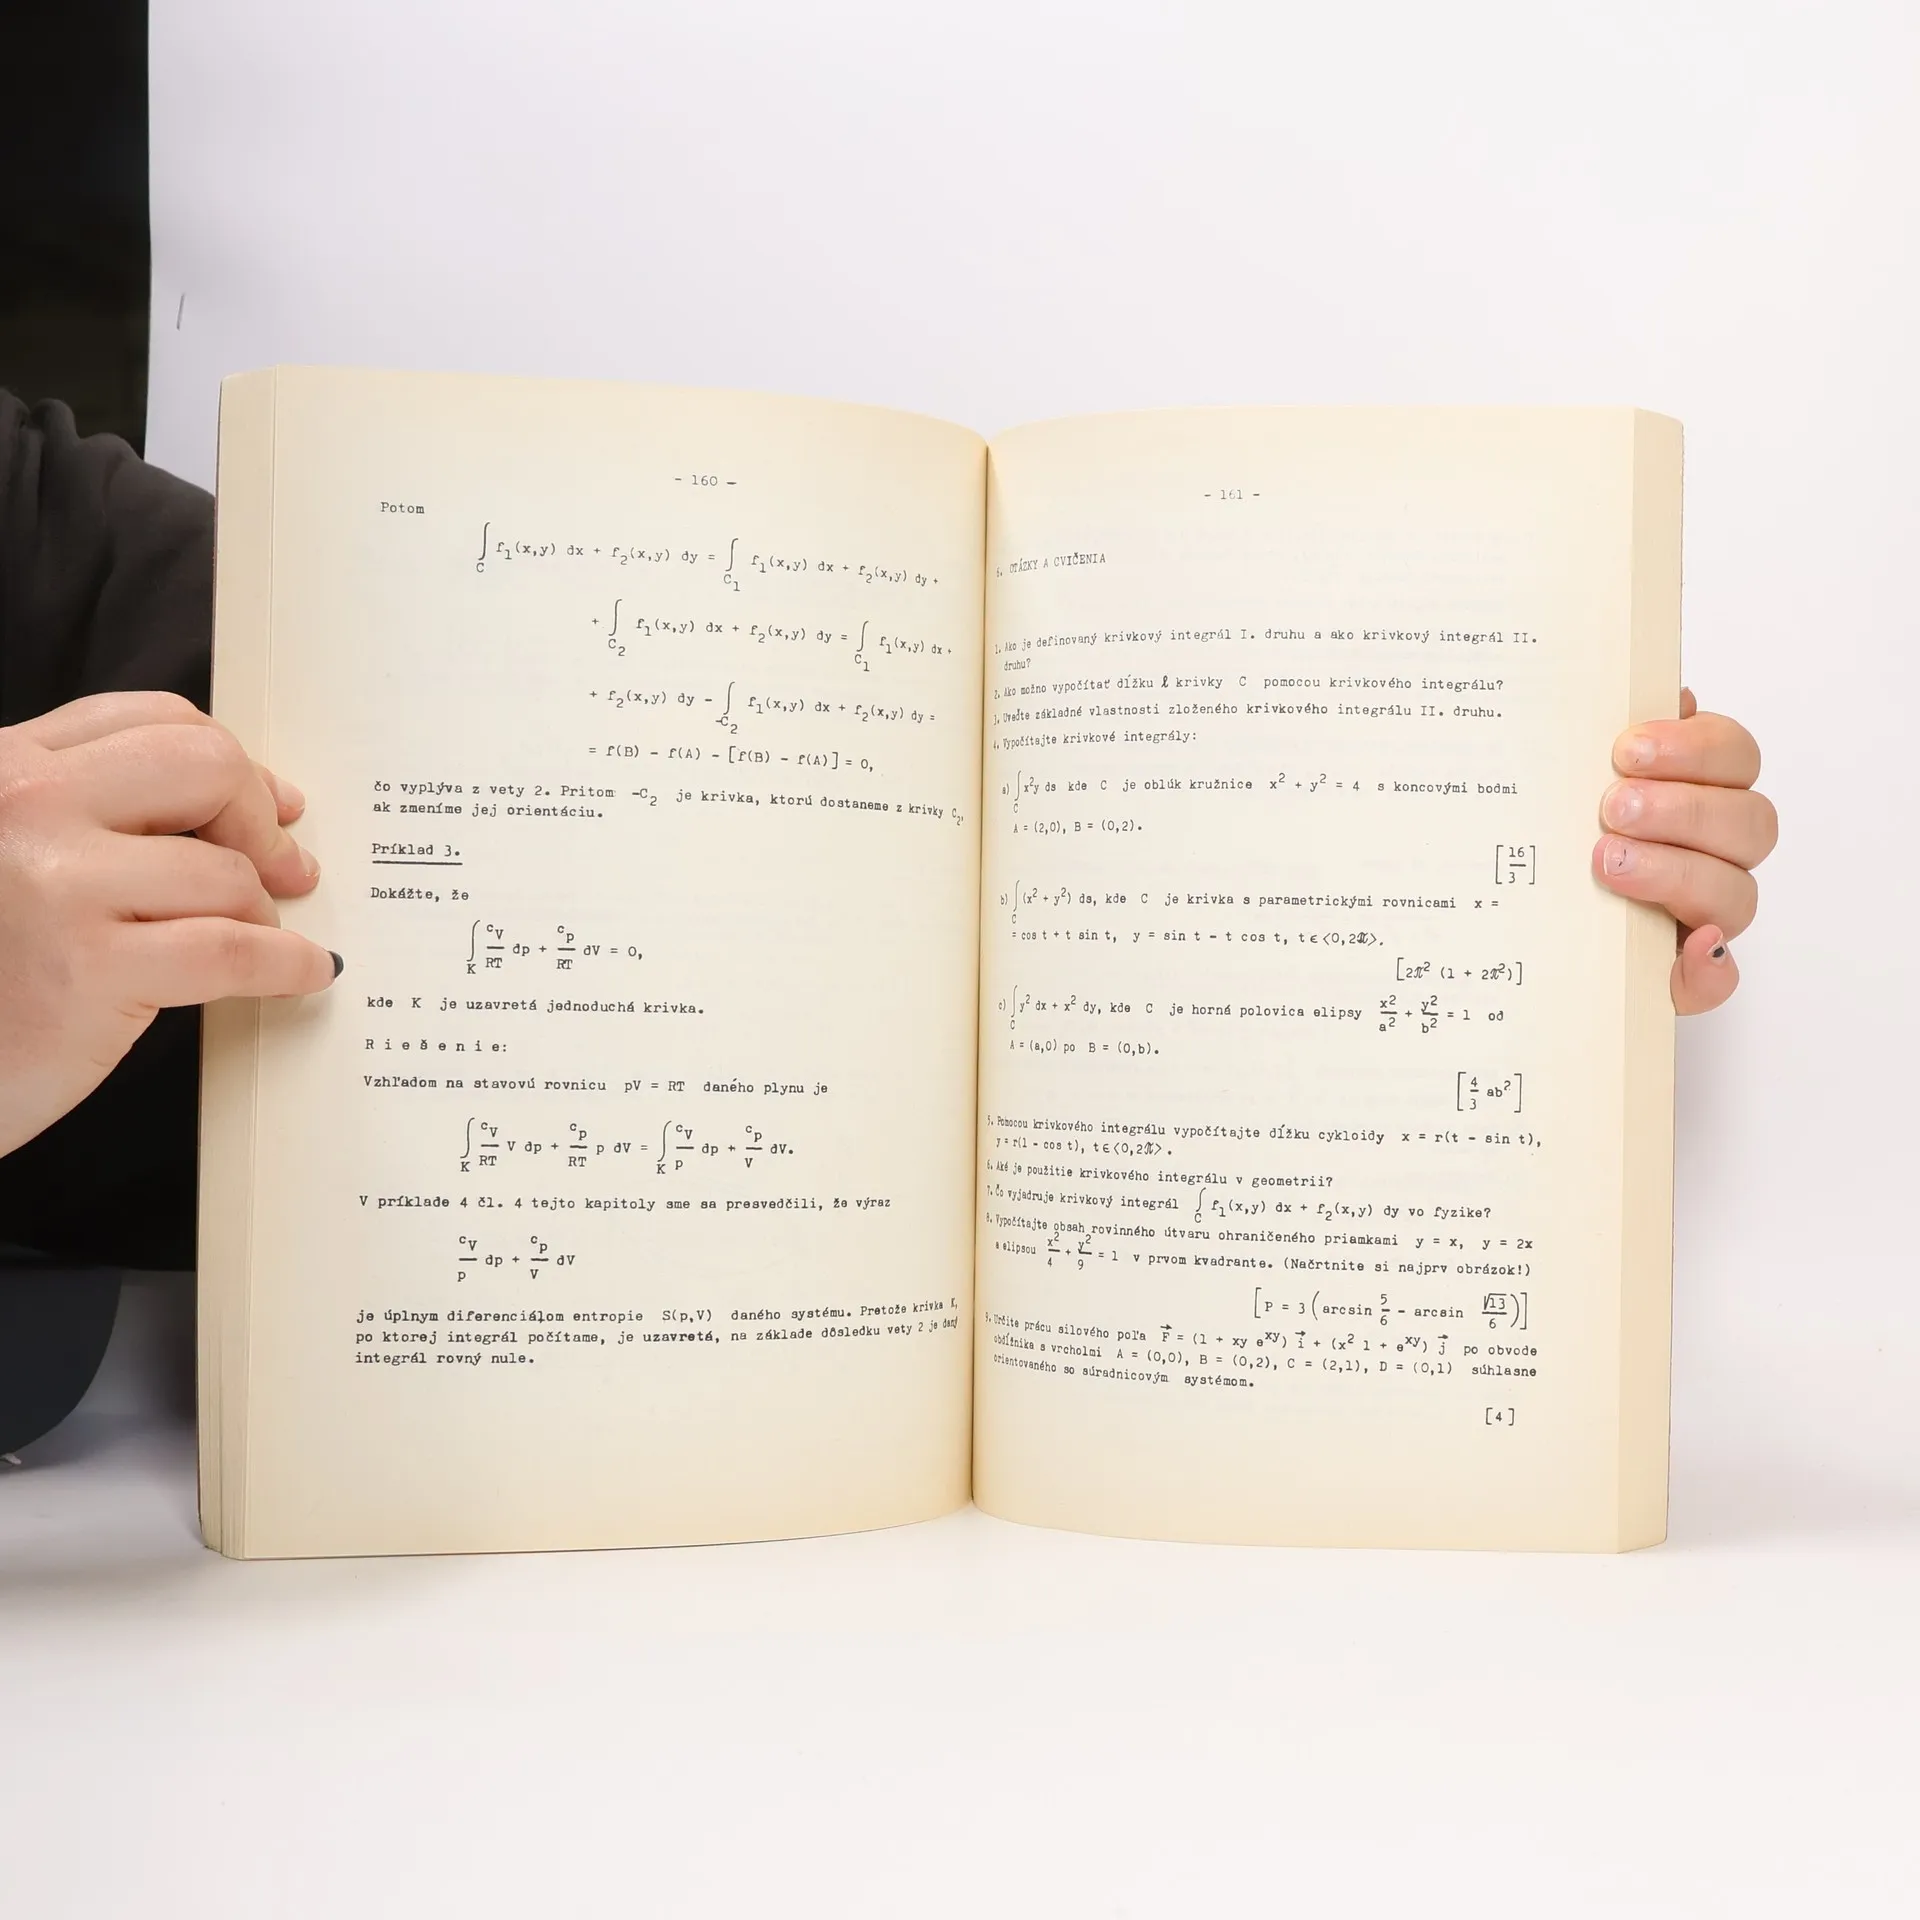 - 160 -
Potom
∫_C f₁(x,y) dx + f₂(x,y) dy = ∫_C₁ f₁(x,y) dx + f₂(x,y) dy +
+ ∫_C₂ f₁(x,y) dx + f₂(x,y) dy = ∫_C₁ f₁(x,y) dx +
+ f₂(x,y) dy - ∫_-C₂ f₁(x,y) dx + f₂(x,y) dy =
= f(B) - f(A) - [f(B) - f(A)] = 0,
čo vyplýva z vety 2. Pritom -C₂ je krivka, ktorú dostaneme z krivky C₂,
ak zmeníme jej orientáciu.
Príklad 3.
Dokážte, že
∫_K c_V/RT dp + c_p/RT dV = 0,
kde K je uzavretá jednoduchá krivka.
Riešenie:
Vzhľadom na stavovú rovnicu pV = RT daného plynu je
∫_K c_V/RT V dp + c_p/RT p dV = ∫_K c_V/p dp + c_p/V dV.
V príklade 4 čl. 4 tejto kapitoly sme sa presvedčili, že výraz
c_V/p dp + c_p/V dV
je úplnym diferenciálom entropie S(p,V) daného systému. Pretože krivka K,
po ktorej integrál počítame, je uzavretá, na základe dôsledku vety 2 je daný
integrál rovný nule.
- 161 -
6. OTÁZKY A CVIČENIA
1. Ako je definovaný krivkový integrál I. druhu a ako krivkový integrál II.
druhu?
2. Ako možno vypočítať dĺžku ℓ krivky C pomocou krivkového integrálu?
3. Uveďte základné vlastnosti zloženého krivkového integrálu II. druhu.
4. Vypočítajte krivkové integrály:
a) ∫_C x²y ds kde C je oblúk kružnice x² + y² = 4 s koncovými bodmi
A = (2,0), B = (0,2).
[16/3]
b) ∫_C (x² + y²) ds, kde C je krivka s parametrickými rovnicami x =
= cos t + t sin t, y = sin t - t cos t, t ∈ <0,2π>.
[2π² (1 + 2π²)]
c) ∫_C y² dx + x² dy, kde C je horná polovica elipsy x²/a² + y²/b² = 1 od
A = (a,0) po B = (0,b).
[4/3 ab²]
5. Pomocou krivkového integrálu vypočítajte dĺžku cykloidy x = r(t - sin t),
y = r(1 - cos t), t ∈ <0,2π>.
6. Aké je použitie krivkového integrálu v geometrii?
7. Čo vyjadruje krivkový integrál ∫_C f₁(x,y) dx + f₂(x,y) dy vo fyzike?
8. Vypočítajte obsah rovinného útvaru ohraničeného priamkami y = x, y = 2x
a elipsou x²/4 + y²/9 = 1 v prvom kvadrante. (Načrtnite si najprv obrázok!)
[P = 3 (arcsin 5/6 - arcsin √13/6)]
9. Určite prácu silového poľa F⃗ = (1 + xy e^xy) i⃗ + (x² 1 + e^xy) j⃗ po obvode
obdĺžnika s vrcholmi A = (0,0), B = (0,2), C = (2,1), D = (0,1) súhlasne
orientovaného so súradnicovým systémom.
[4]